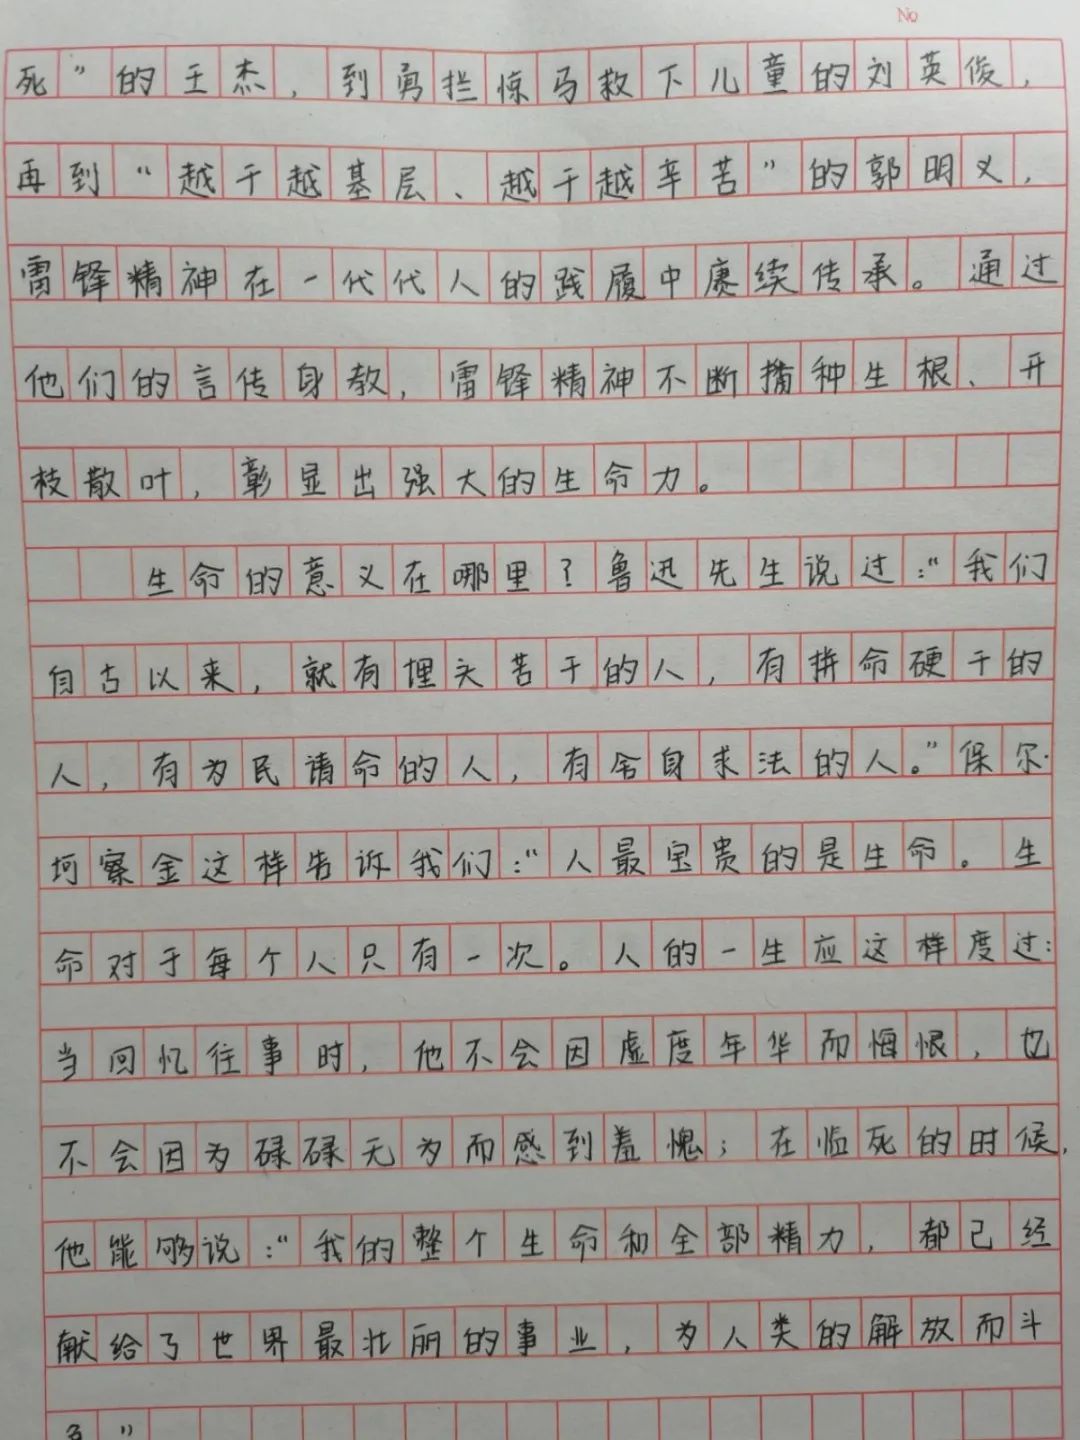 No
死”的王杰，到勇拦惊马救下儿童的刘英俊，
再到“越干越基层、越干越辛苦”的郭明义，
雷锋精神在一代代人的践履中赓续传承。通过
他们的言传身教，雷锋精神不断播种生根、开
枝散叶，彰显出强大的生命力。
生命的意义在哪里？鲁迅先生说过：“我们
自古以来，就有埋头苦干的人，有拼命硬干的
人，有为民请命的人，有舍身求法的人。”保尔·
坷察金这样告诉我们：“人最宝贵的是生命。生
命对于每个人只有一次。人的一生应这样度过：
当回忆往事时，他不会因虚度年华而悔恨，也
不会因为碌碌无为而感到羞愧；在临死的时候，
他能够说：“我的整个生命和全部精力，都已经
献给了世界最壮丽的事业，为人类的解放而斗
”